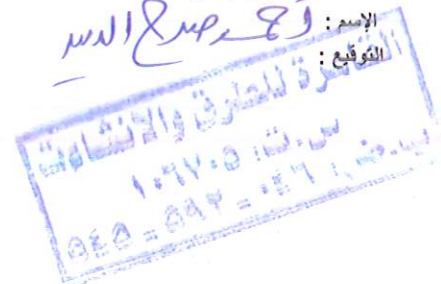 الإسم : أحمد صلاح السيد
التوقيع :
القاهرة للطرق والانشاءات
س.ت: ١٠٦٧٠٥
ب.ض: ٥٤٥ - ٥٩٢ - ٠٤٦